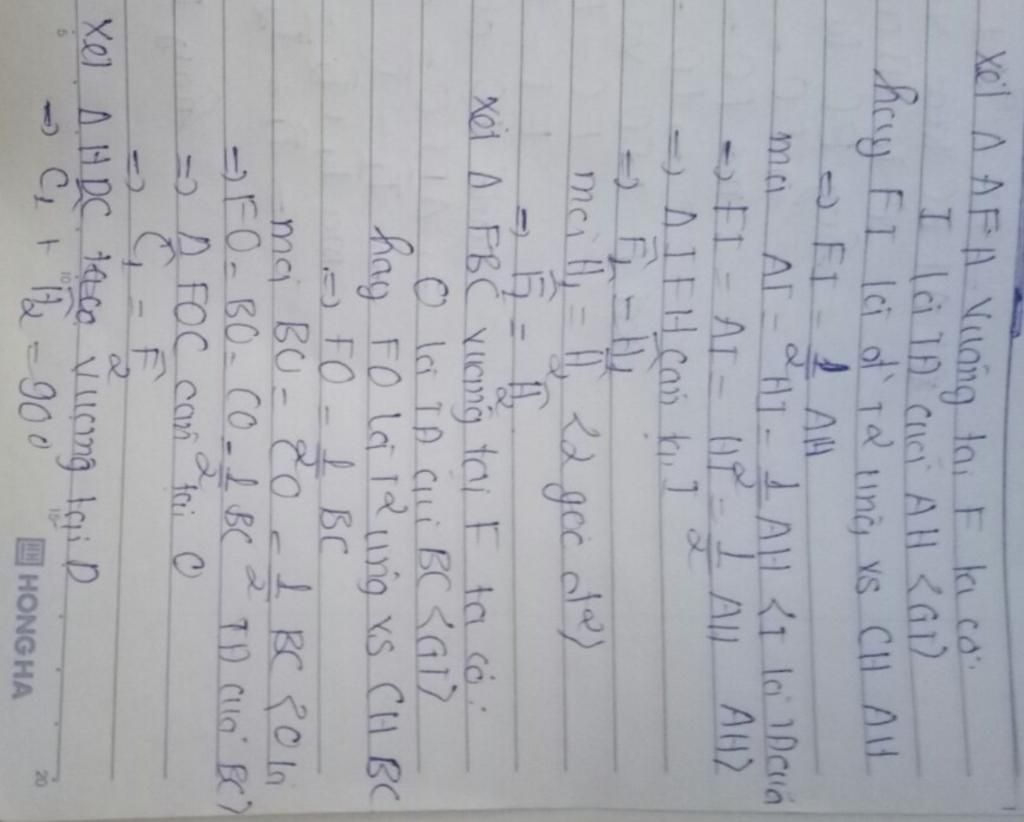 Xét Δ AFH vuông tại F ta có:
I là TĐ của AH <GT>
hay FI là đ' T2 ứng vs CH AH
=> FI = 1/2 AH
mà AI = HI = 1/2 AH <I là TĐ của AH>
=> FI = AI = HI = 1/2 AH
=> Δ IFH cân tại I
=> F̂₂ = Ĥ₁
mà Ĥ₁ = Ĥ₂ <2 góc đ2>
=> F̂₂ = Ĥ₂
Xét Δ FBC vuông tại F ta có:
O là TĐ của BC <GT>
hay FO là T2 ứng vs CH BC
=> FO = 1/2 BC
mà BO = CO = 1/2 BC <O là TĐ của BC>
=> FO = BO = CO = 1/2 BC
=> Δ FOC cân tại O
=> Ĉ₁ = F̂
Xét Δ HDC vuông tại D
=> C₁ + Ĥ₂ = 90°
HONG HA
5 10 15 20